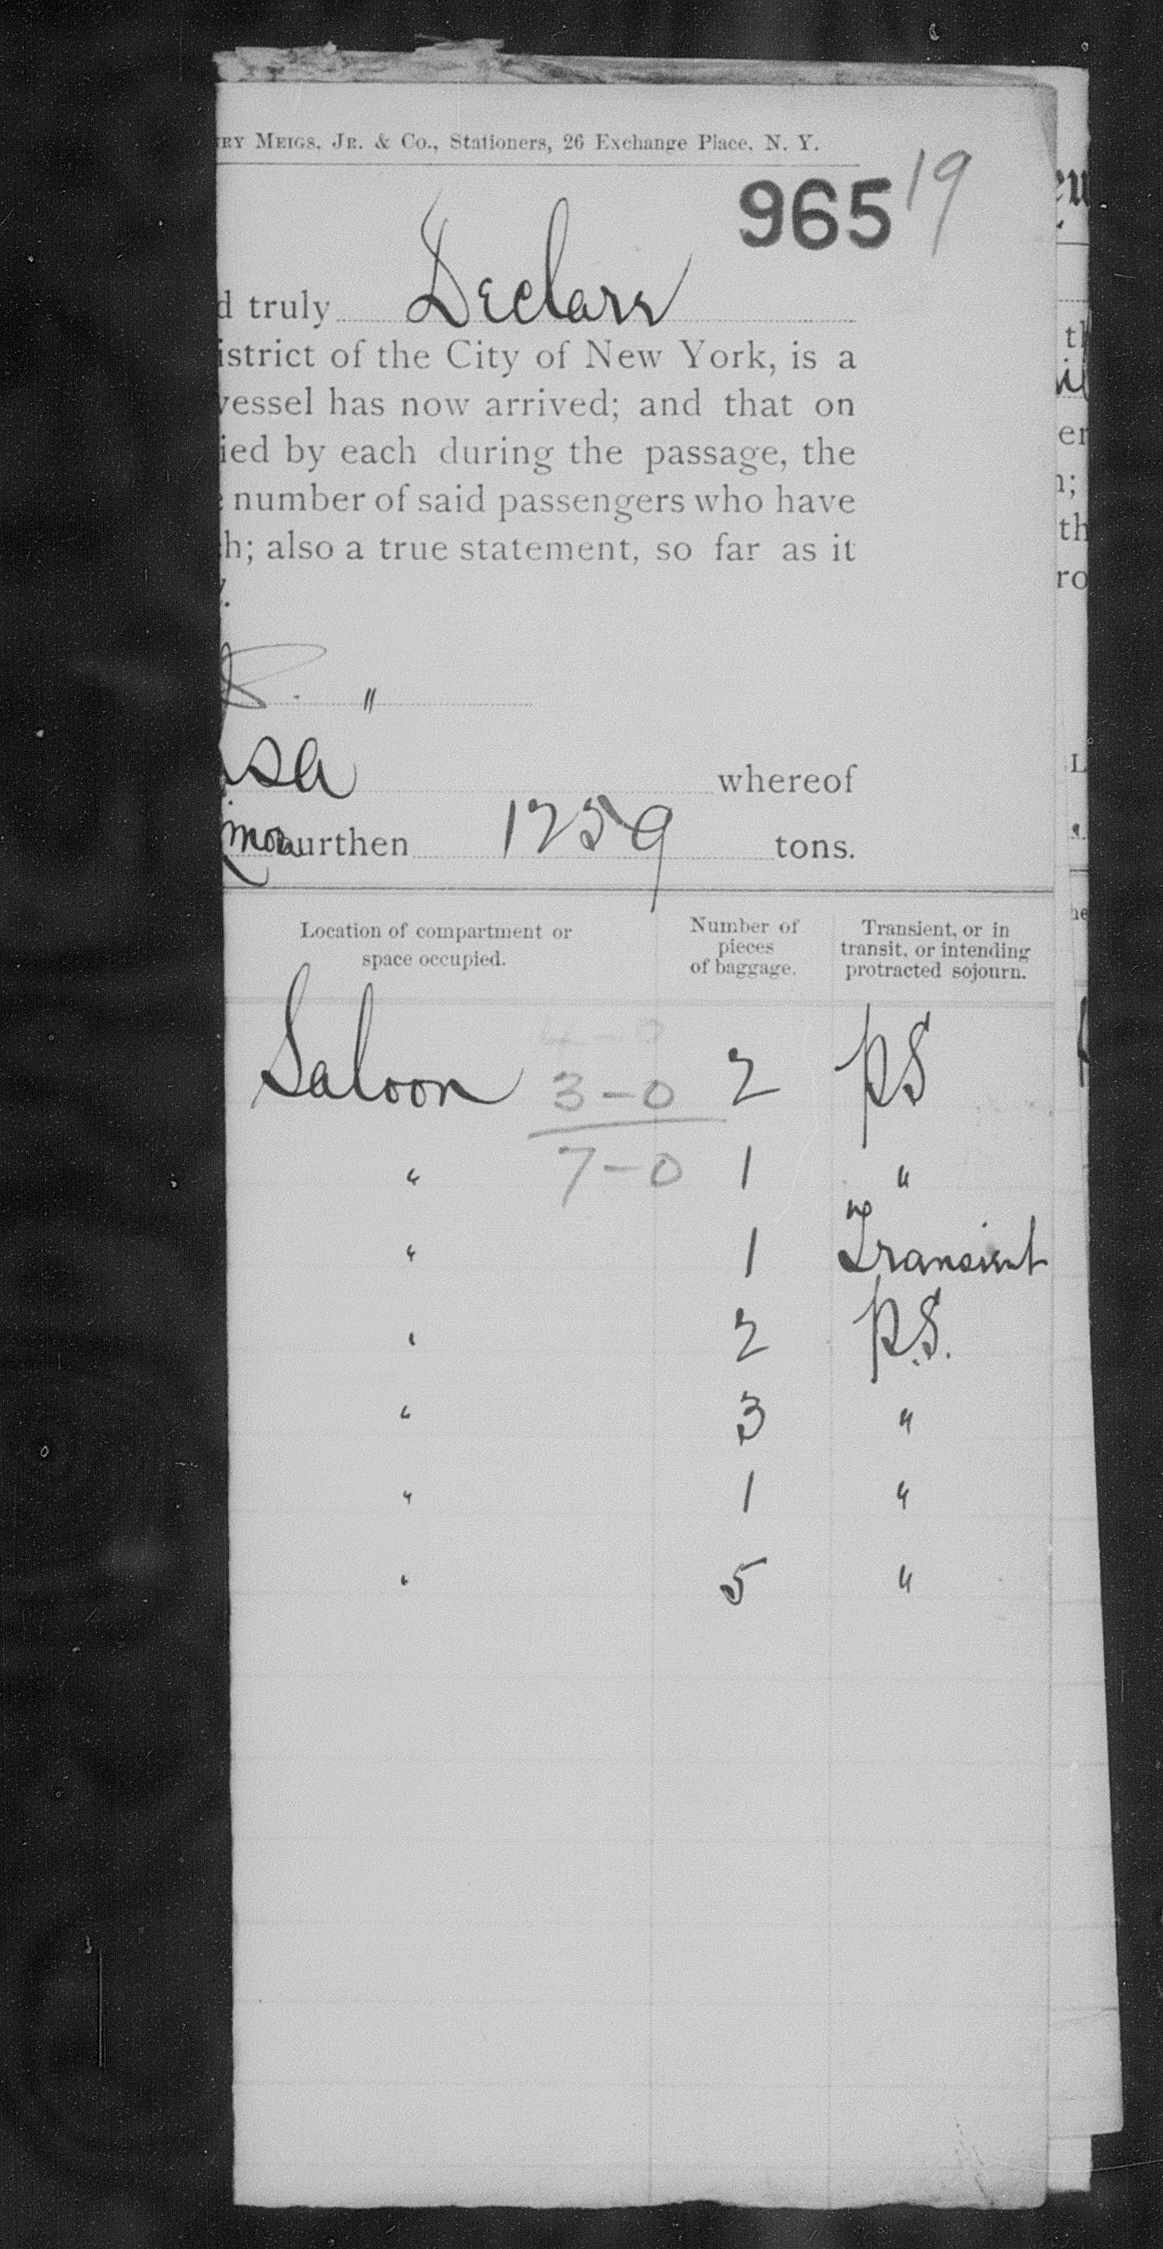 RY MEIGS, JR. & Co., Stationers, 26 Exchange Place, N. Y.
965 19
d truly Declare
istrict of the City of New York, is a
vessel has now arrived; and that on
ied by each during the passage, the
number of said passengers who have
h; also a true statement, so far as it
y.
"
whereof
urthen 1259 tons.
Location of compartment or space occupied. Number of pieces of baggage. Transient, or in transit, or intending protracted sojourn.
4-0
Saloon 3-0 2 PS
" 7-0 1 "
" 1 Transient
" 2 P.S.
" 3 "
" 1 "
" 5 "